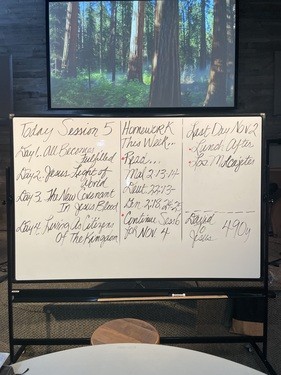 Today Session 5
Day 1. All Becomes
Fulfilled
Day 2. Jesus Light of
World
Day 3. The New Covenant
In Jesus Blood
Day 4. Living As Citizens
Of The Kingdom
Homework
This Week..
• Read...
Mal 2:13-14
Gen 2:18,
Continue
for Nov 4.
Last Day Nov 2
• Lunch After
• Los
David
to
Jesus
490y